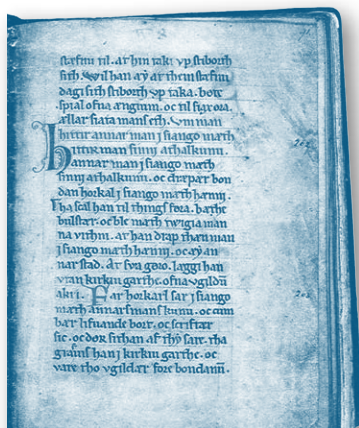 stæfnu til. at han taki vp stiborth
sith. wil han æy at them stæfnu
dagi sith stiborth vp taka. bøte
spial ofna ængium. oc til
ællar siata mans eth. vm man
hittir annar man j siango mæth
Hittir man sinni athalkunu.
annar man j siango mæth
sinni athalkunu. oc dræpær bon
dan horkal j siango mæth hænni.
Tha scal han til things føra. bæthe
bulstær. oc ble mæth twigia man
na vitnu. at han drap than man
j siango mæth hænni. oc æy an
nar stad. Ær sva gøro. laggi han
vtan kirkiu garthe. ofna vgildū
akri. Far horkarl sar j siango
mæth annars mans kunu. oc cum
bær lifuande bort. oc scriftær
sic. oc dør sithan af thy sare. tha
grauis han j kirkiu garthe. oc
vare tho vgildær fore bondanū.